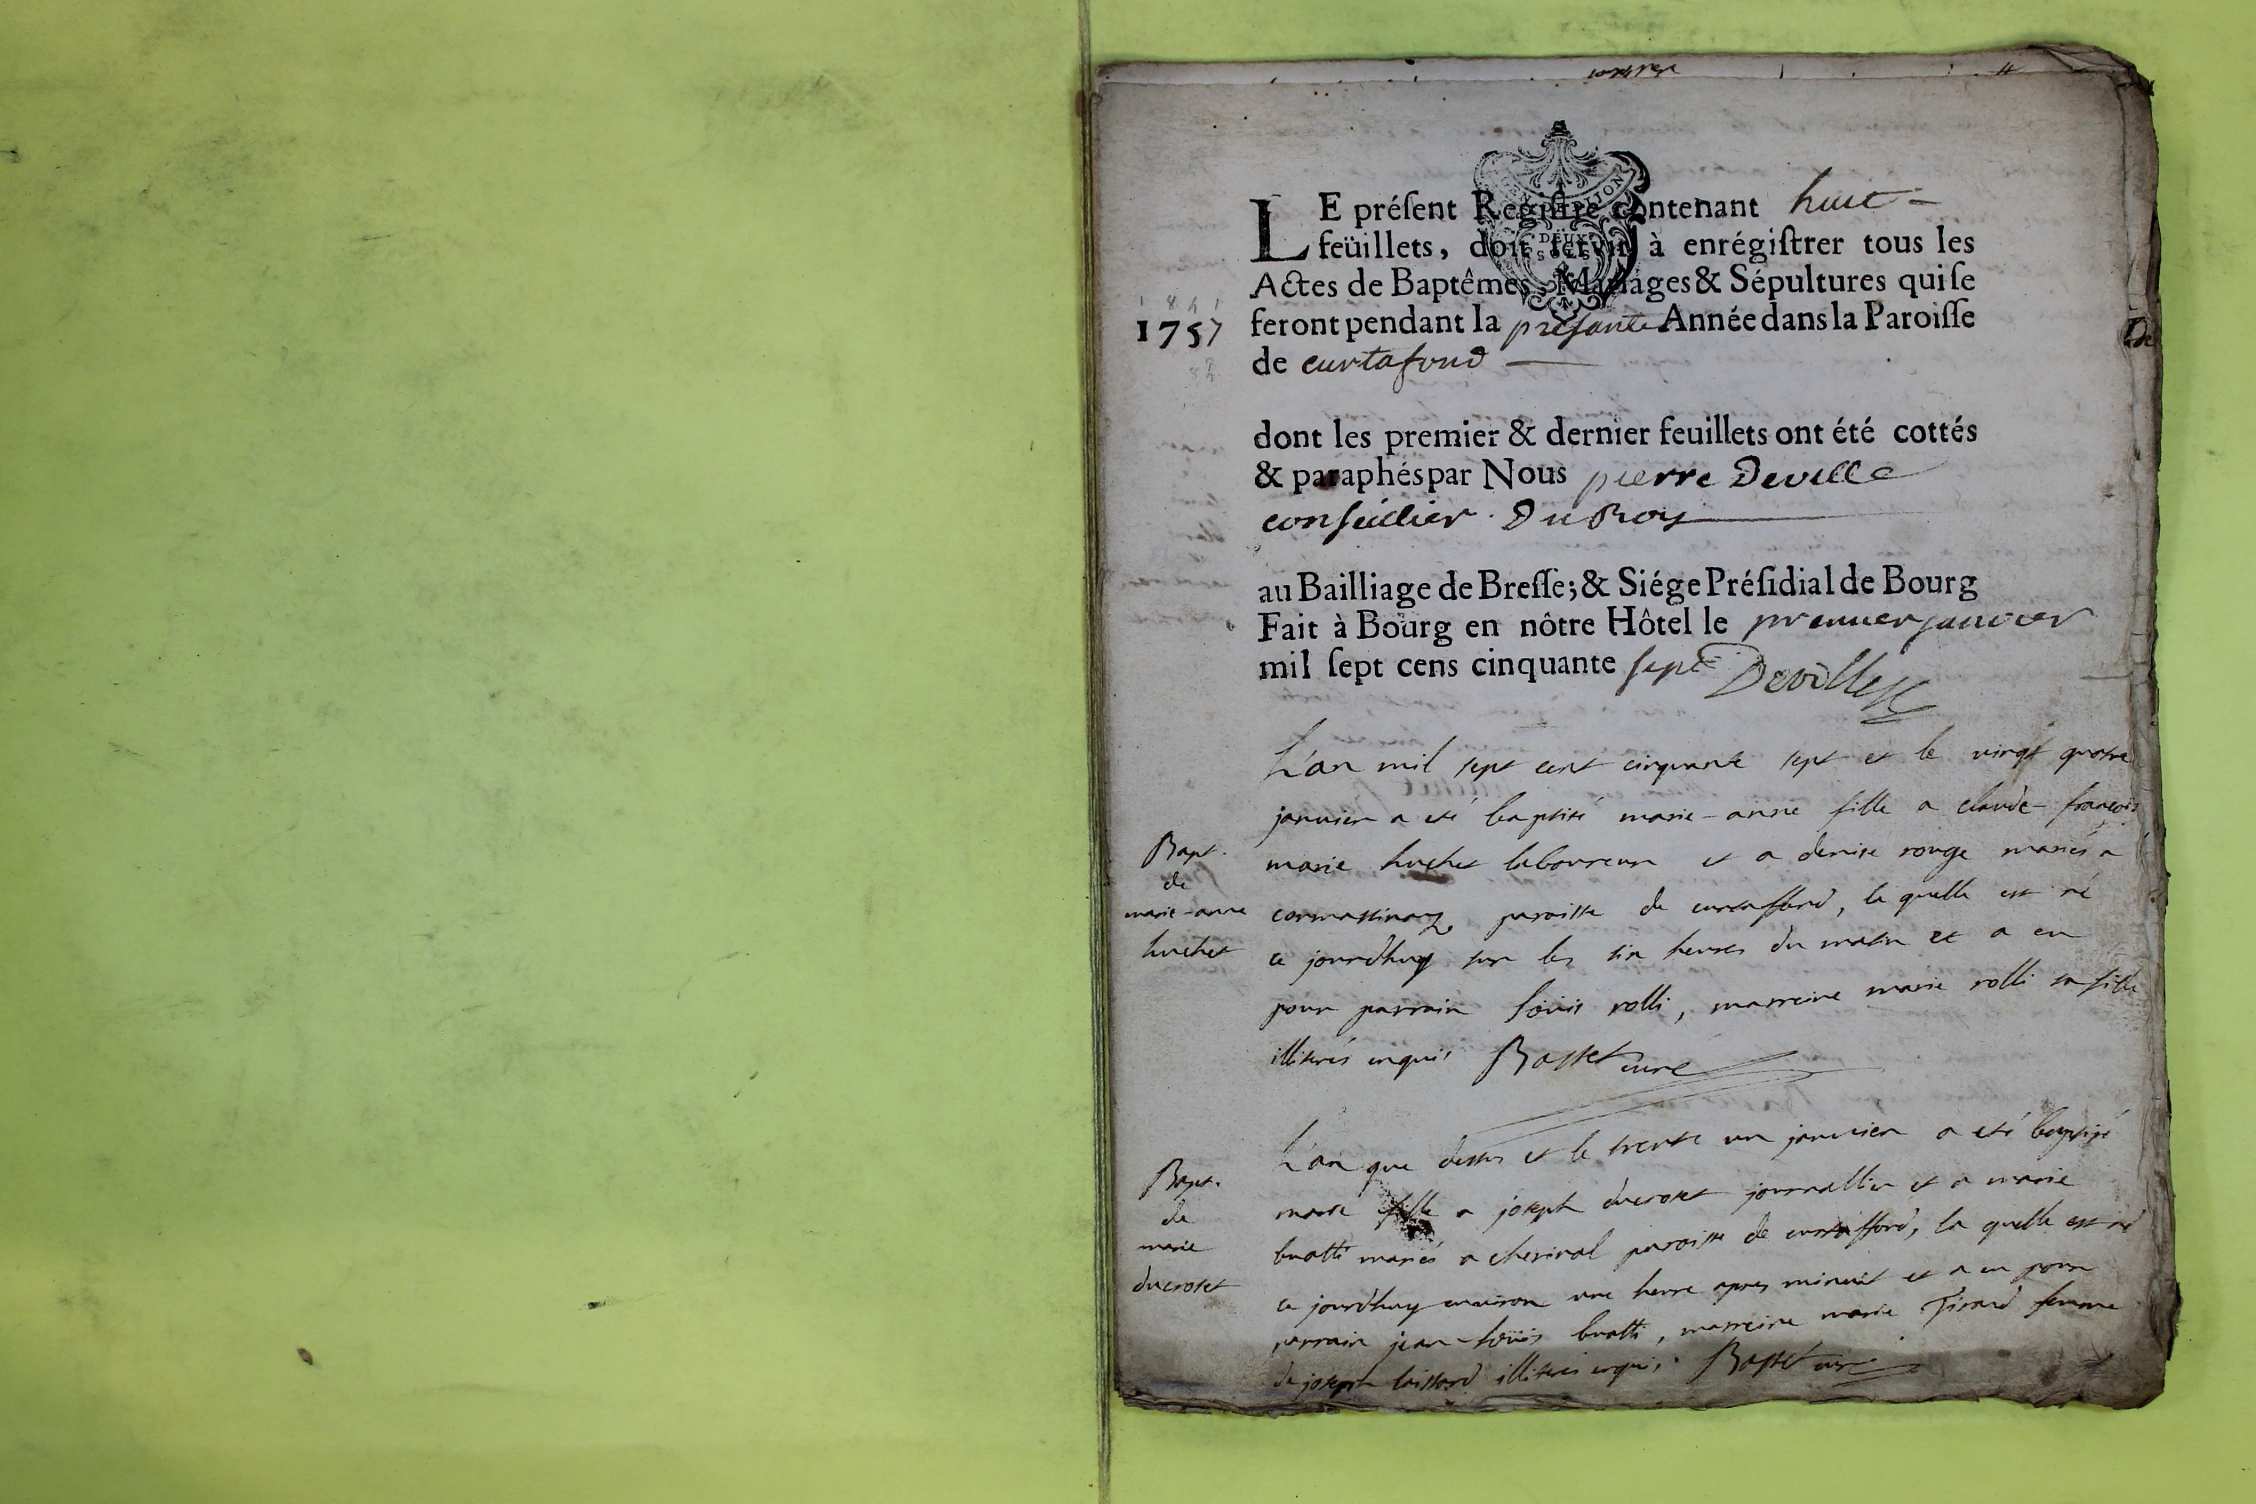 LE préſent Regiſtre contenant huit
feüillets, doit ſervir à enrégiſtrer tous les
Actes de Baptêmes, Mariages & Sépultures qui ſe
1757
feront pendant la présante Année dans la Paroiſſe
de curtafond
dont les premier & dernier feuillets ont été cottés
& paraphés par Nous pierre Deville
conseillier Du Roy
au Bailliage de Breſſe; & Siége Préſidial de Bourg
Fait à Bourg en nôtre Hôtel le premier janvier
mil ſept cens cinquante sept Deville
L'an mil sept cent cinquante sept et le vingt quatre
janvier a eté baptisé marie-anne fille a claude-françois
Bapt.
de
marie-anne
huchet
marie huchet laboureur et a denise rouge mariés a
paroisse de curtaffond, la quelle est né
ce jourdhuy sur les six heures du matin et a eu
pour parrain loüis rolli, marreine marie rolli sa fille
illiterés enquis Basset curé
L'an que dessus et le trente un janvier a eté baptisé
Bapt.
de
marie
ducroset
marie fille a joseph ducroset journallier et a marie
buatti mariés a cherinal paroisse de curtaffond, la quelle est né
ce jourdhuy environ une heure apres minuit et a eu pour
parrain jean-loüis buatti, marreine marie Tirand femme
de joseph illiterés enquis. Basset curé